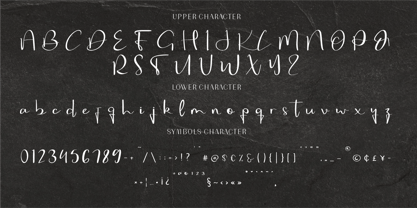 UPPER CHARACTER
ABCDEFGHIJKLMNOPQ
RSTUVWXYZ
LOWER CHARACTER
abcdefghijklmnopqrstuvwxyz
SYMBOLS CHARACTER
0123456789